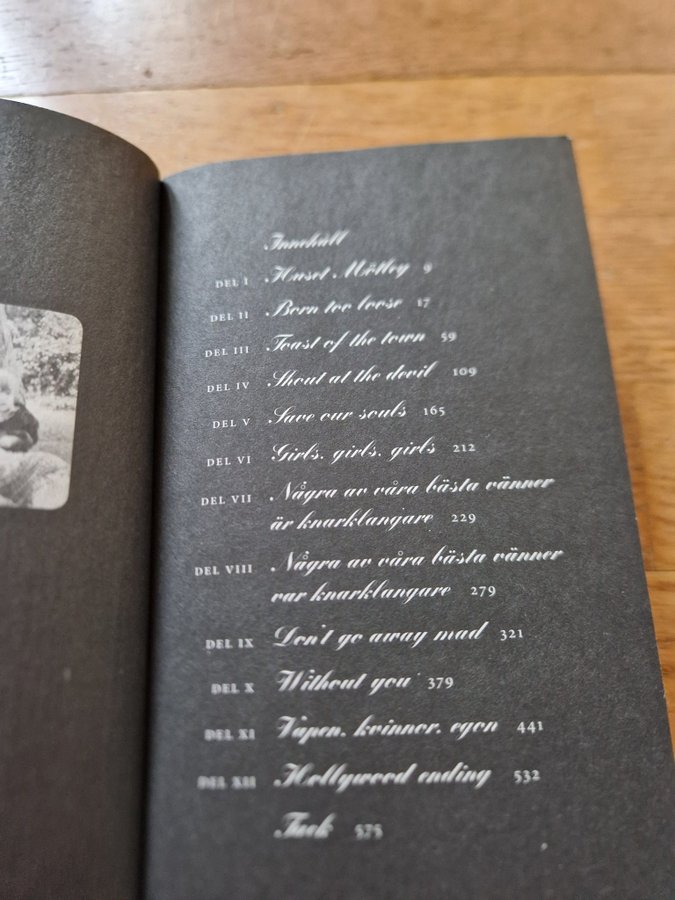 Innehåll
DEL I Huset Mötley 9
DEL II Born too loose 17
DEL III Toast of the town 59
DEL IV Shout at the devil 109
DEL V Save our souls 165
DEL VI Girls, girls, girls 212
DEL VII Några av våra bästa vänner
är knarklangare 229
DEL VIII Några av våra bästa vänner
var knarklangare 279
DEL IX Don't go away mad 321
DEL X Without you 379
DEL XI Vapen, kvinnor, egon 441
DEL XII Hollywood ending 532
Tack 575